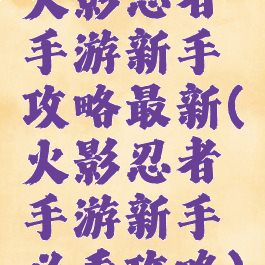 火影忍者
手游新手
攻略最新(
火影忍者
手游新手
必看攻略)